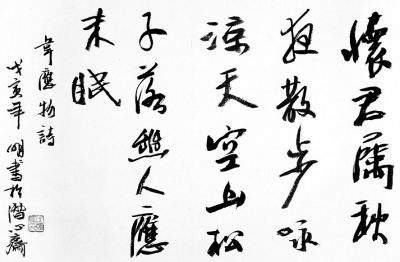 懷君屬秋
夜散步咏
涼天空山松
子落幽人應
未眠
韋應物詩
戊亥年 明書於潛心齋